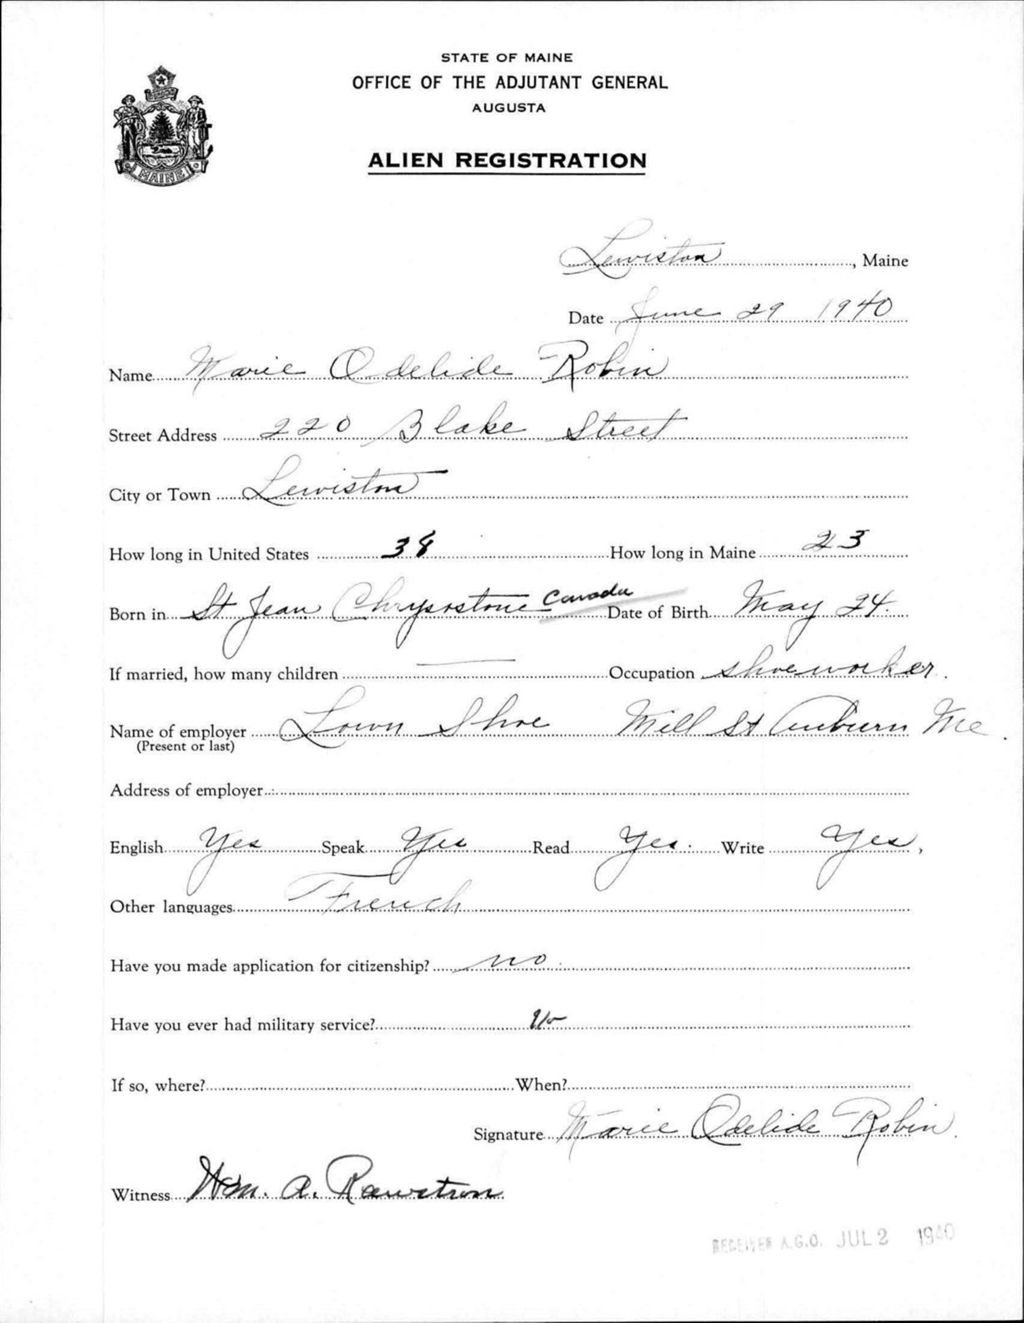 STATE OF MAINE
OFFICE OF THE ADJUTANT GENERAL
AUGUSTA
ALIEN REGISTRATION
MAINE
Lewiston, Maine
Date June 29 1940
Name Marie Odelide Robin
Street Address 220 Blake Street
City or Town Lewiston
How long in United States 38 How long in Maine 23
Born in St Jean Chrysostome Canada Date of Birth May 24.
If married, how many children — Occupation shoeworker.
Name of employer Lown Shoe Mill St Auburn Me.
(Present or last)
Address of employer
English Yes Speak Yes Read Yes. Write Yes,
Other languages French
Have you made application for citizenship? no
Have you ever had military service? no
If so, where? When?
Signature Marie Odelide Robin.
Witness Wm. A. Rawstron
RECEIVED A.G.O. JUL 2 1940